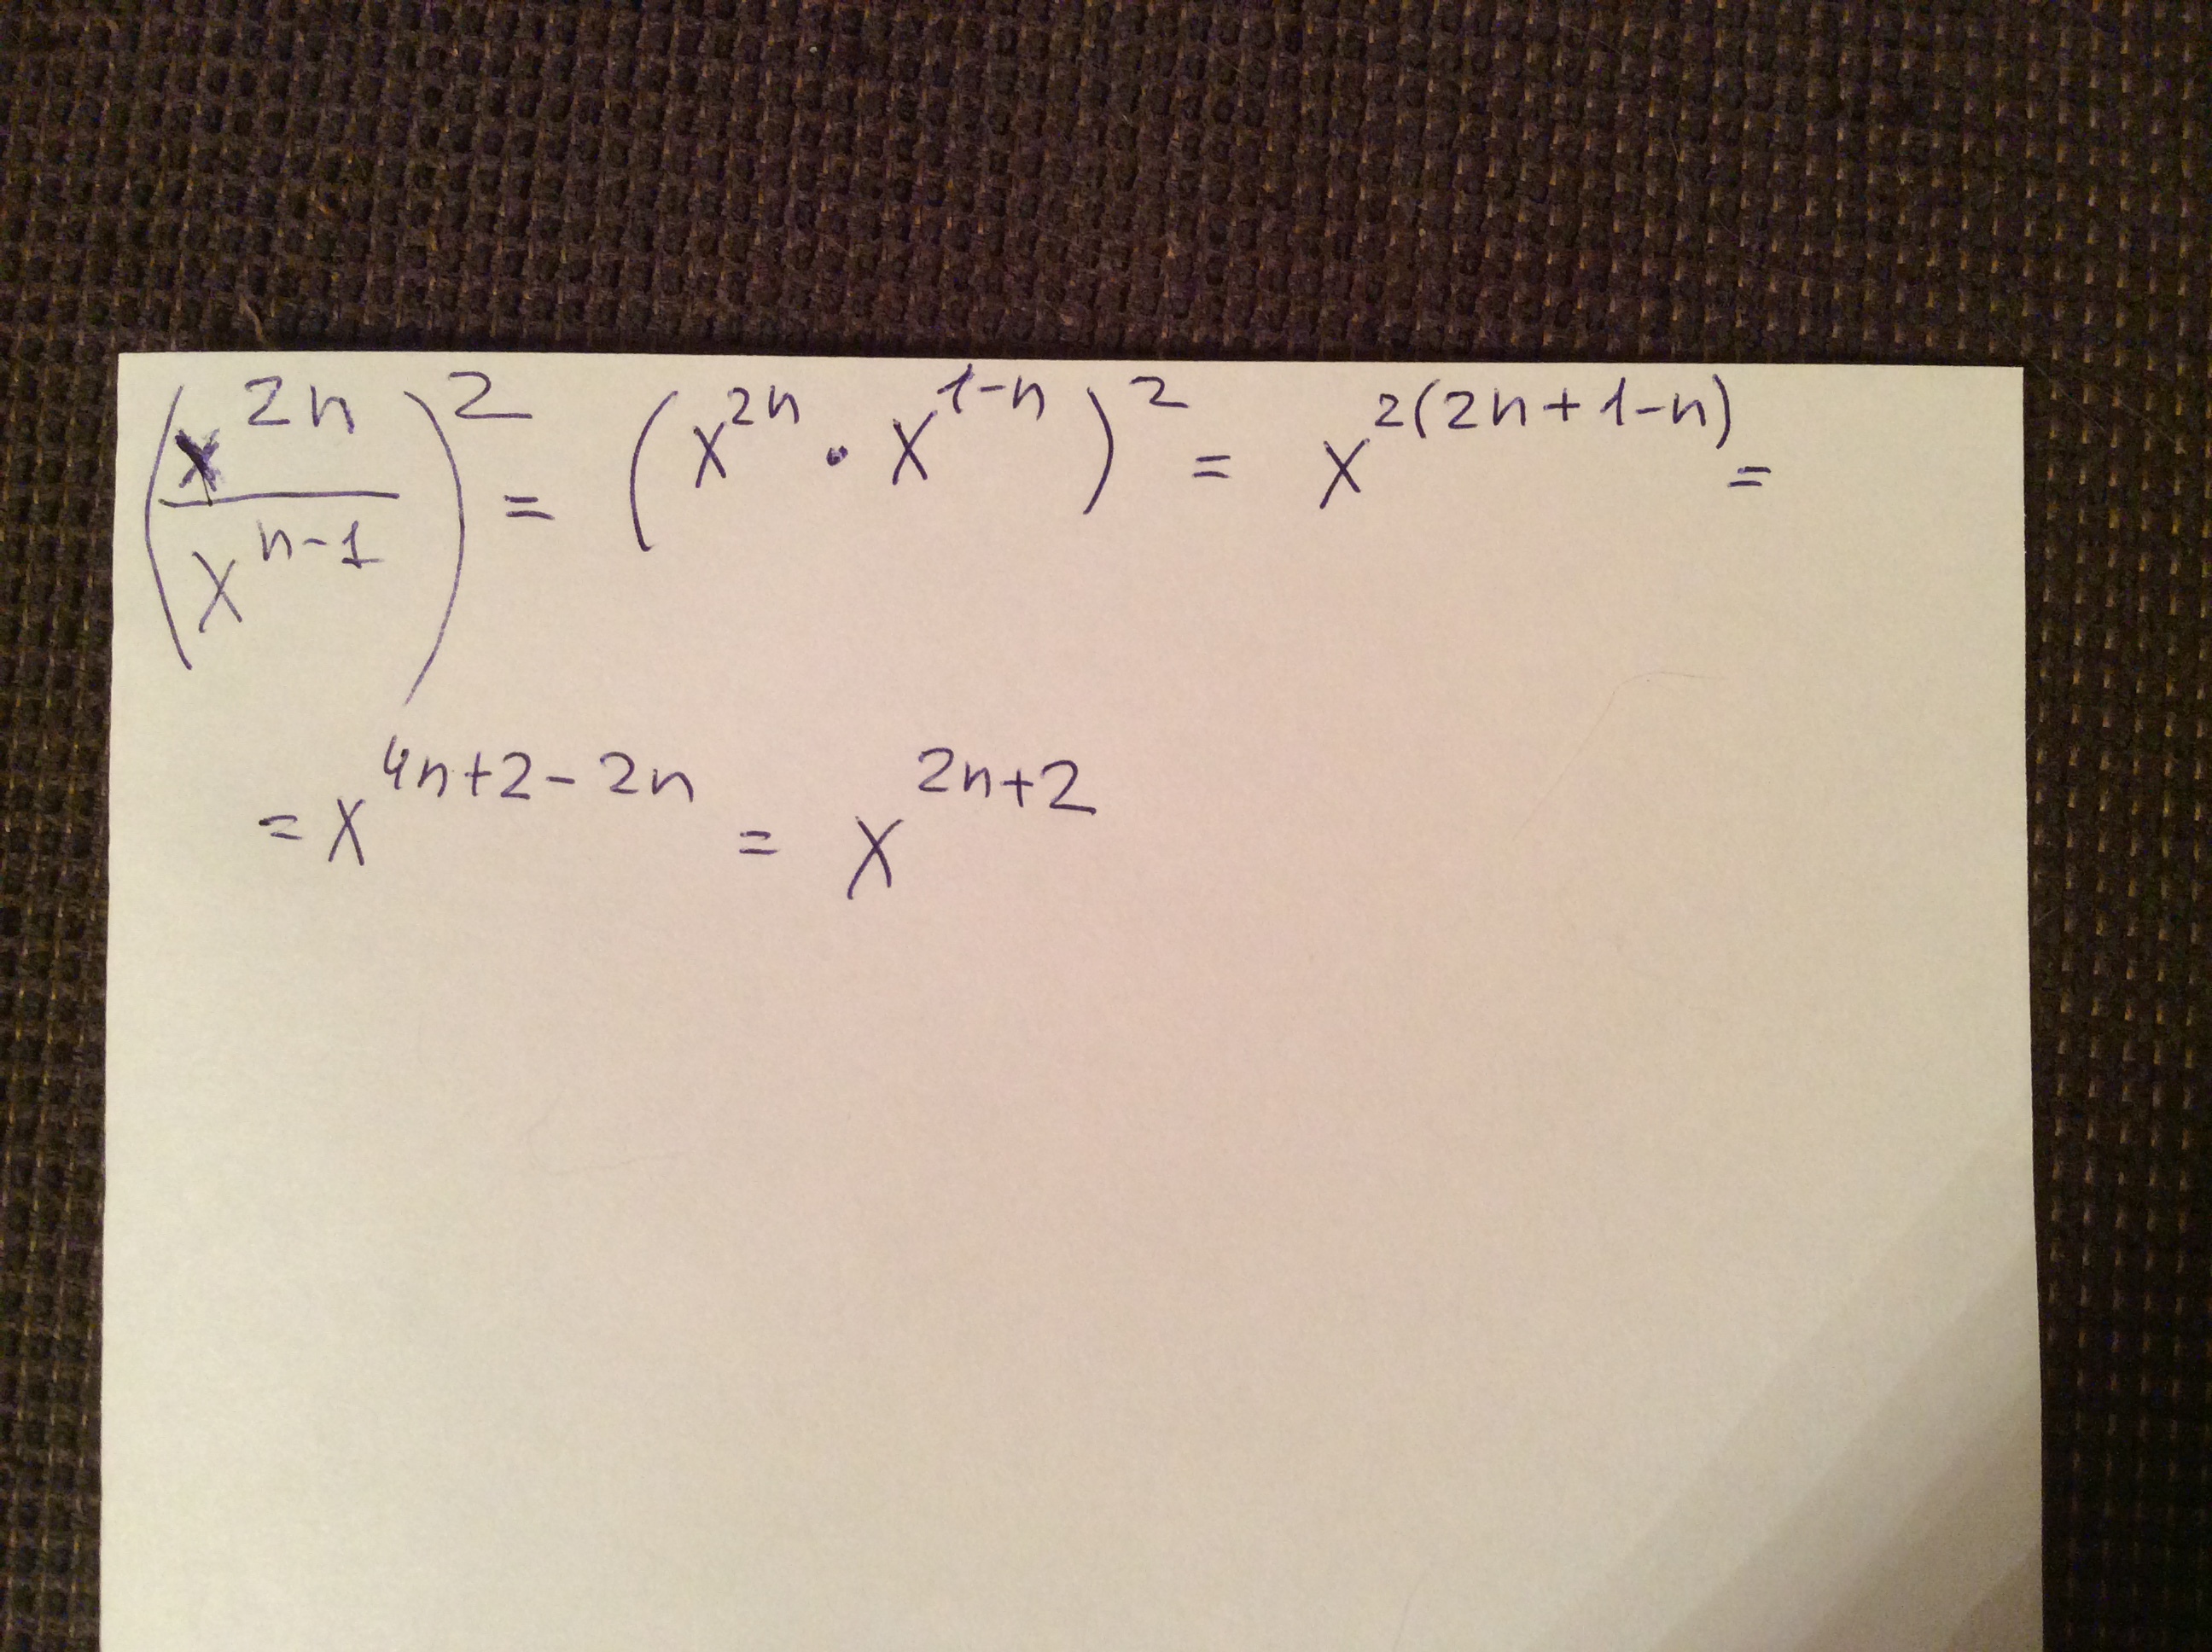 (x^{2n} / x^{n-1})^2 = (x^{2n} · x^{1-n})^2 = x^{2(2n+1-n)} =
= x^{4n+2-2n} = x^{2n+2}